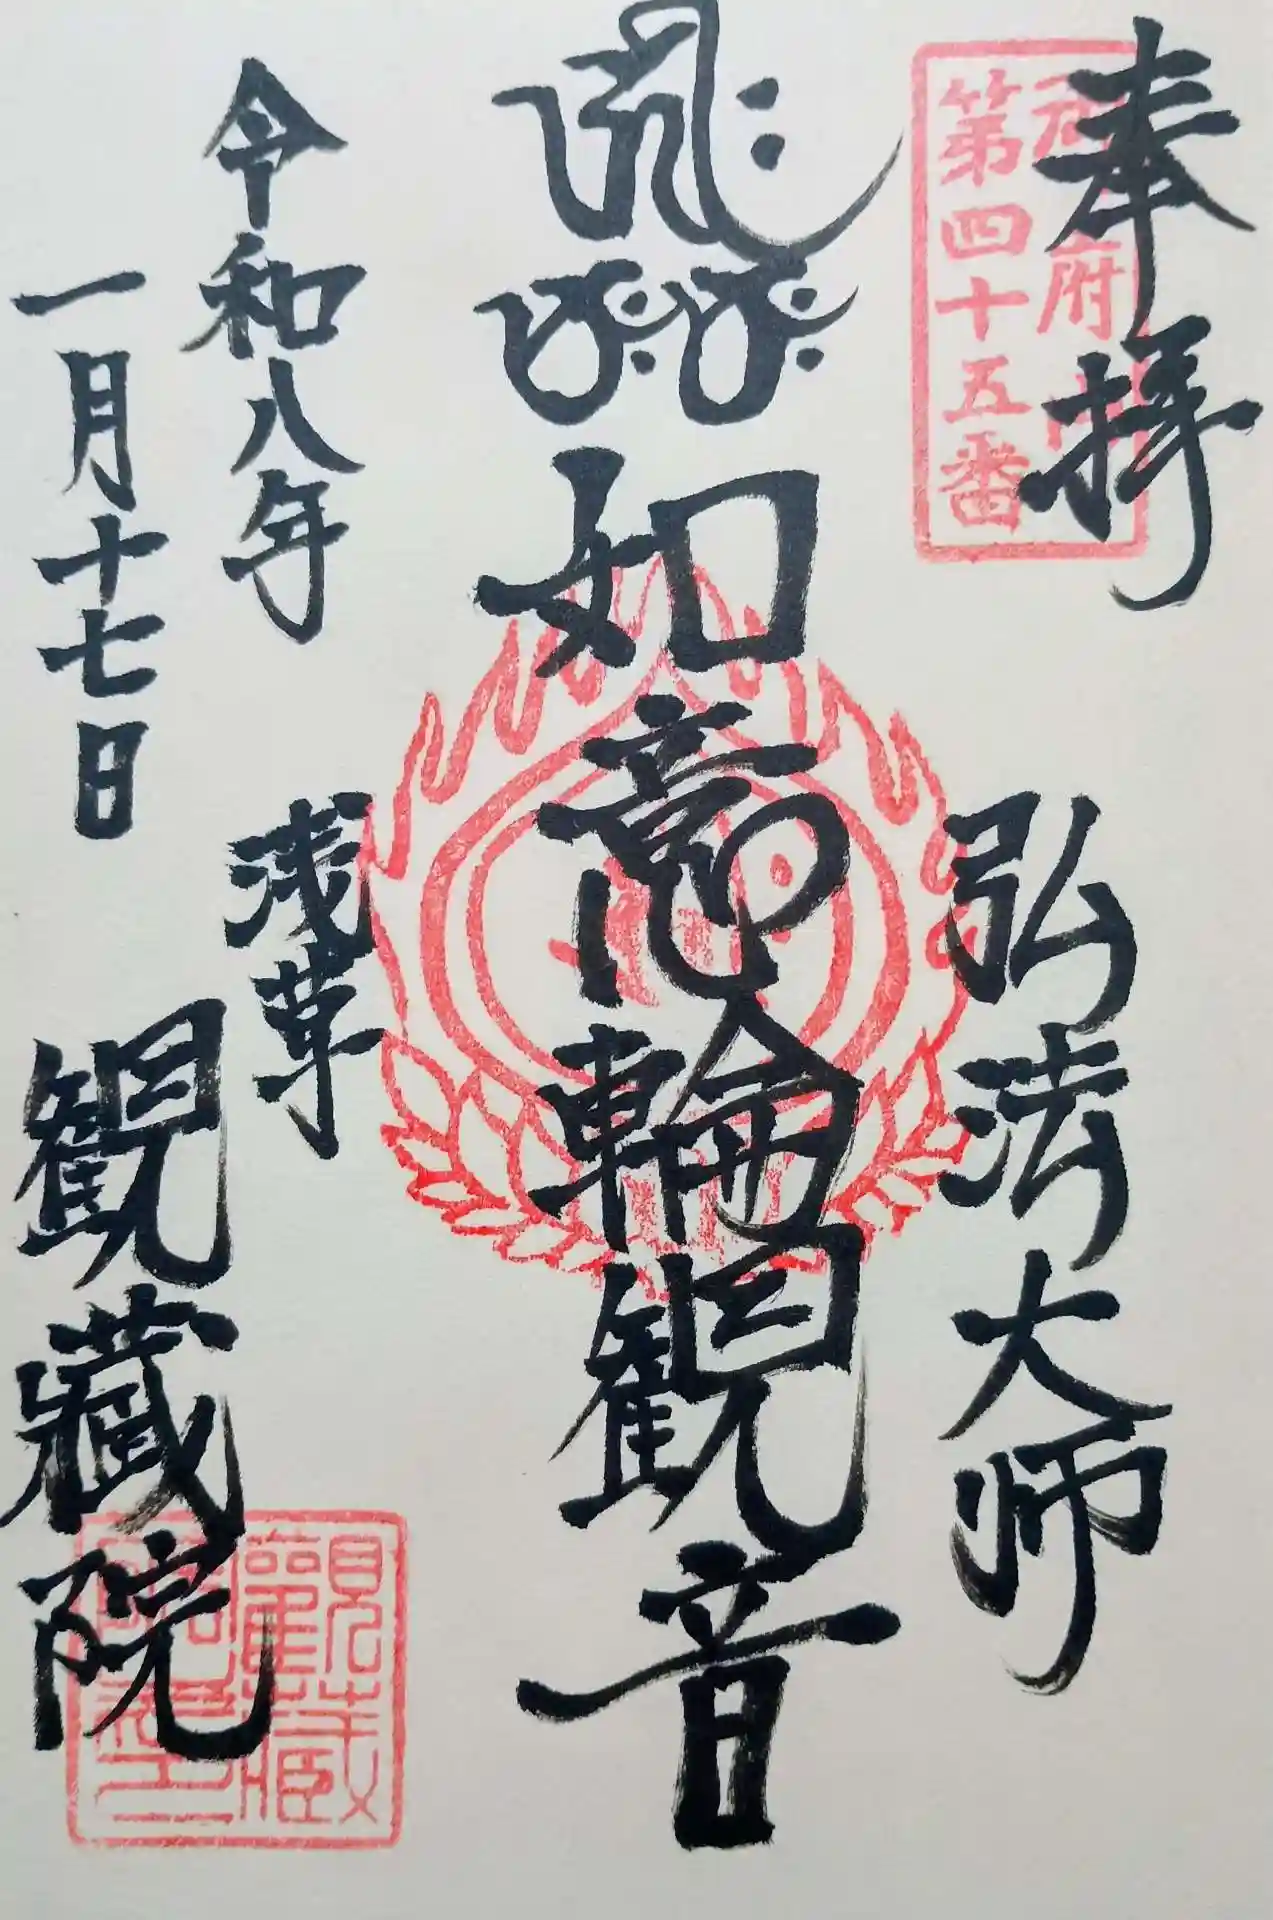 奉拝
御府内
第四十五番
弘法大師
如意輪観音
令和八年
一月十七日
浅草
観蔵院